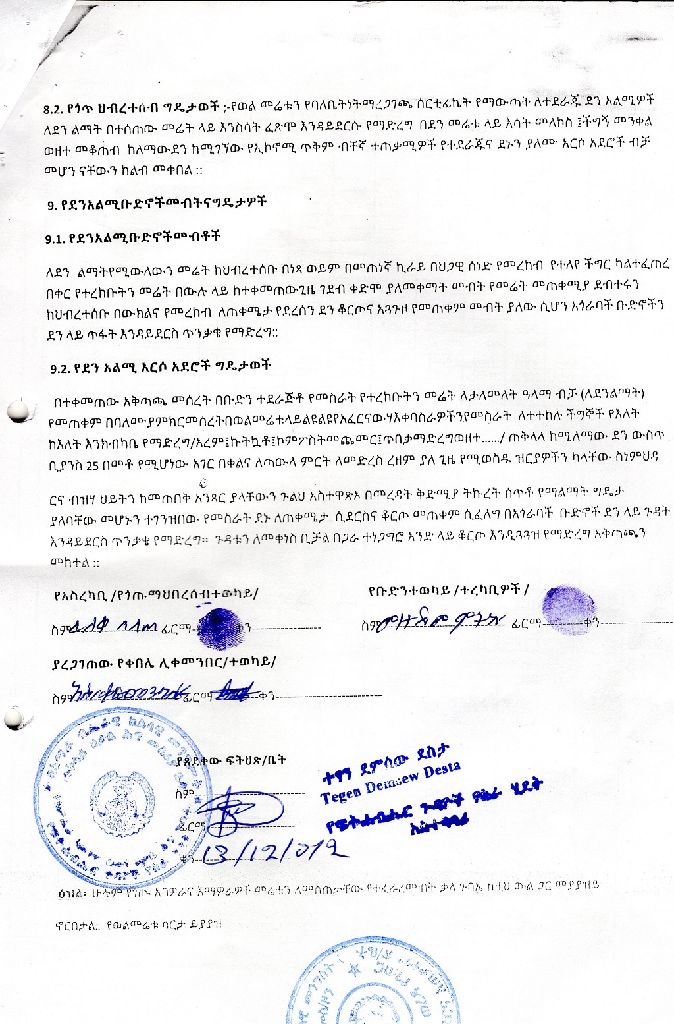 8.2. የጎጥ ህብረተሰብ ግዴታወች ;-የወል መሬቱን የባለቤትነትማረጋገጫ ሰርቲፊኬት የማውጣት ለተደራጁ ደን አልሚዎች
ለደን ልማት በተሰጠው መሬት ላይ እንስሳት ፈጽሞ እንዳይደርሱ የማድረግ በደን መሬቱ ላይ እሳት መለኮስ ፤ችግኝ መንቀል
ወዘተ መቆጠብ ከለማውደን ከሚገኘው የኢኮኖሚ ጥቅም ብቸኛ ተጠቃሚዎች የተደራጁና ደኑን ያለሙ አርሶ አደሮች ብቻ
መሆን ናቸውን ከልብ መቀበል ፡፡
9. የደንአልሚቡድኖችመብትናግዴታዎች
9.1. የደንአልሚቡድኖችመብቶች
ለደን ልማትየሚውለውን መሬት ከህብረተሰቡ በነጻ ወይም በመጠነኛ ኪራይ በህጋዊ ሰነድ የመረከብ የተለየ ችግር ካልተፈጠረ
በቀር የተረከቡትን መሬት በውሉ ላይ ከተቀመጠውጊዜ ገደብ ቀድሞ ያለመቀማት መብት የመሬት መጠቀሚያ ደብተሩን
ከህብረተሰቡ በውክልና የመረከብ ለጠቀሜታ የደረሰን ደን ቆርጦና አጓጉዞ የመጠቀም መብት ያለው ሲሆን አጎራባች ቡድኖችን
ደን ላይ ጥፋት እንዳይደርስ ጥንቃቄ የማድረግ፡፡
9.2. የደን አልሚ አርሶ አደሮች ግዴታወች
በተቀመጠው አቅጣጫ መሰረት በቡድን ተደራጅቶ የመስራት የተረከቡትን መሬት ለታለመለት ዓላማ ብቻ (ለደንልማት)
የመጠቀም በባለሙያምክርመሰረትበወልመሬቱላይልዩልዩየአፈርናውሃእቀባስራዎችንየመስራት ለተተከሉ ችግኞች የእለት
ከእለት እንክብካቤ የማድረግ/አረም፤ኩትኳቶ፤ኮምፖስትመጨመር፤ጥበታማድረግወዘተ....../ ጠቅላላ ከሚለማው ደን ውስጥ
ቢያንስ 25 በመቶ የሚሆነው አገር በቀልና ለጣውላ ምርት ለመድረስ ረዘም ያለ ጊዜ የሚወስዱ ዝርያዎችን ካላቸው ስነምህዳ
ርና ብዝሃ ህይትን ከመጠበቅ አንጻር ያላቸውን ጉልህ አስተዋጽኦ በመረዳት ቅድሚያ ትኩረት ሰጥቶ የማልማት ግዴታ
ያለባቸው መሆኑን ተገንዝበው የመስራት ደኑ ለጠቀሜታ ሲደርስና ቆርጦ መጠቀም ሲፈለግ በአጎራባች ቡድኖች ደን ላይ ጉዳት
እንዳይደርስ ጥንቃቄ የማድረግ። ጉዳቱን ለመቀነስ ቢቻል በጋራ ተነጋግሮ አንድ ላይ ቆርጦ እንዲጓጓዝ የማድረግ አቅጣጫን
መከተል ፡፡
የአስረካቢ /የጎጡማህበረሰብተወካይ/ የቡድንተወካይ /ተረካቢዎች /
ስም ፊርማ ቀን ስም ፊርማ ቀን
ያረጋገጠው የቀበሌ ሊቀመንበር/ተወካይ/
ስም ፊርማ ቀን
ያጸደቀው ፍትህጽ/ቤት
ተገን ደምሰው ደስታ
Tegen Demsew Desta
ስም
ፊርማ
ቀን 13/12/2012